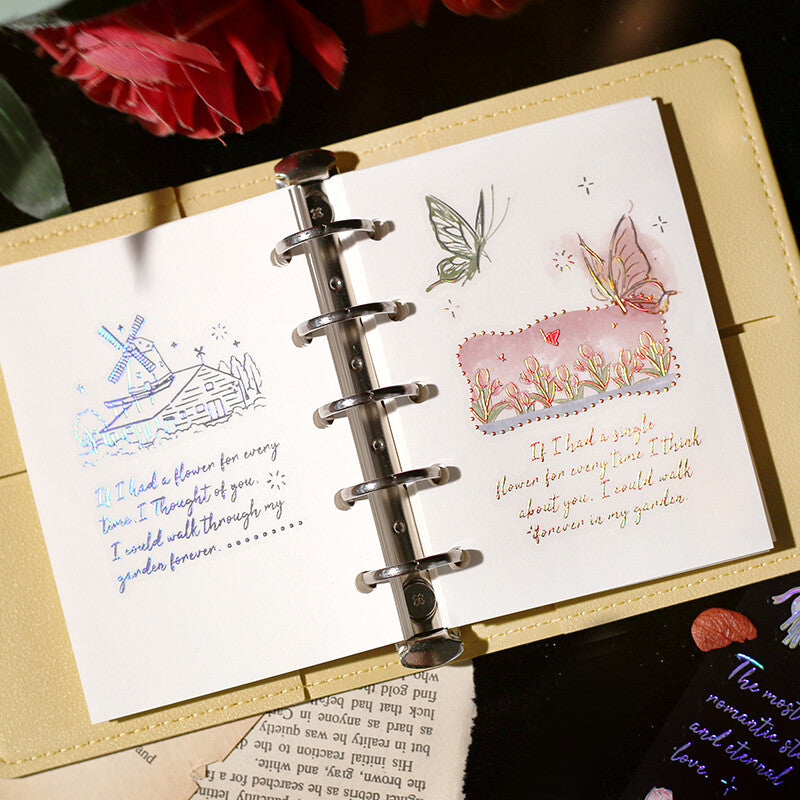 If I had a flower for every
time, I Thought of you,
I could walk through my
garden forever.
If I had a single
flower for every time I think
about you, I could walk
forever in my garden.
The most
romantic st
and eternal
love.
who
find gold
luck that had befall
as hard as anyone in Ca
but in reality he was quietly
His initial reaction to the
the brown, gray, and white.
lighter debris as he searched for a fa
patiently lettin
und